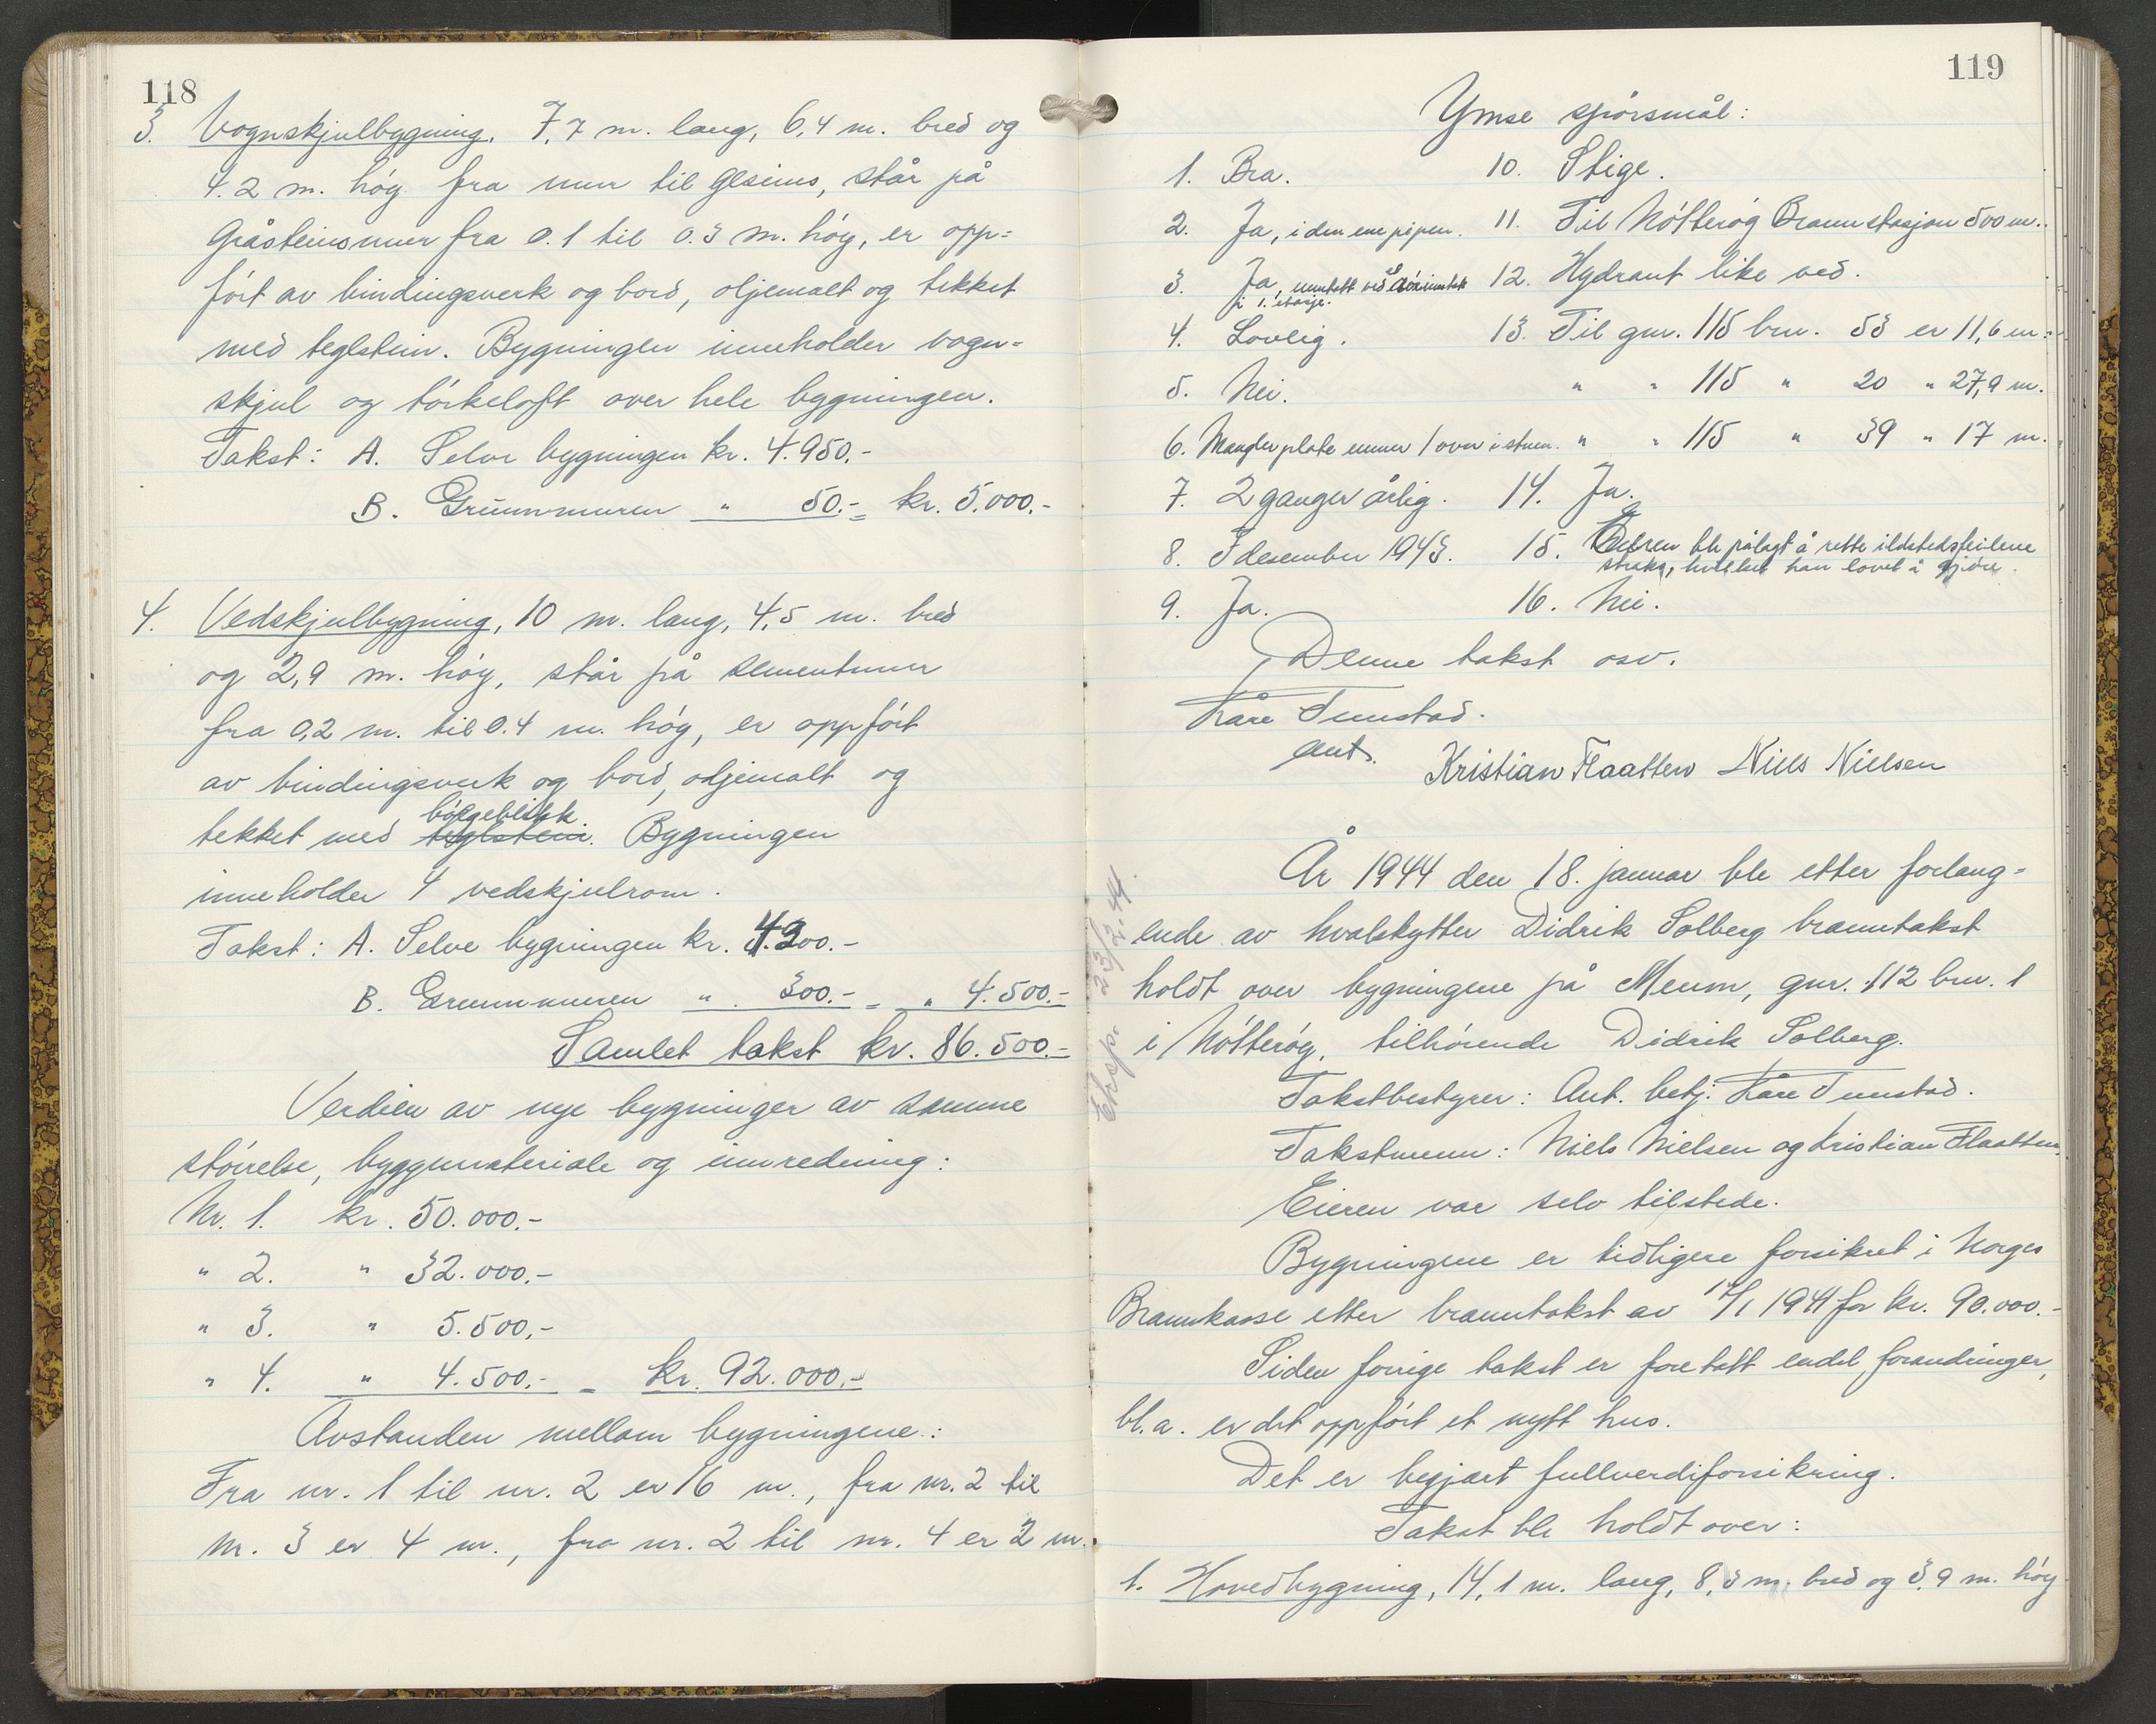 118
3. Vognskjulbygning, 7,7 m. lang, 6,4 m. bred og
4.2 m. høg fra mur til gesims, står på
Gråsteinsmur fra 0.1 til 0.3 m. høg, er opp=
ført av bindingsverk og bord, oljemalt og tekket
med teglstein. Bygningen inneholder vogn=
skjul og tørkeloft over hele bygningen.
Takst: A. Selve bygningen kr. 4.950.-
B. Grunnmuren " 50.- = kr. 5.000.-
4. Vedskjulbygning, 10 m. lang, 4,5 m. bred
og 2,9 m. høg, står på sementmur
fra 0,2 m. til 0.4 m. høg, er oppført
av bindingsverk og bord, oljemalt og
bølgeblikk
tekket med teglstein. Bygningen
inneholder 4 vedskjulrom.
Takst: A. Selve bygningen kr. 4.200.-
B. Grunnmuren " 300.- = " 4.500.-
Samlet takst kr. 86.500.-
Verdien av nye bygninger av samme
størrelse, byggemateriale og innredning:
Nr. 1. kr. 50.000.-
" 2. " 32.000.-
" 3. " 5.500.-
" 4. " 4.500.- = kr. 92.000.-
Avstanden mellom bygningene:
Fra nr. 1 til nr. 2 er 16 m., fra nr. 2 til
nr. 3 er 4 m., fra nr. 2 til nr. 4 er 2 m.
119
Ymse spørsmål:
1. Bra. 10. Stige.
2. Ja, i den ene pipen. 11. Til Nøtterøy Brannstasjon 500 m.
3. Ja, unntatt ved 12. Hydrant like ved.
i 1. etasje.
4. Lovlig. 13. Til gnr. 115 bnr. 53 er 11,6 m.
5. Nei. " " 115 " 20 " 27,9 m.
6. Mangler plate under 1 ovn i stuen. " " 115 " 39 " 17 m.
7. 2 ganger årlig. 14. Ja.
8. I desember 1943. 15. Eieren ble pålagt å rette ildstedsfeilene
straks, hvilket han lovet å gjøre.
9. Ja. 16. Nei.
Denne takst osv.
Kåre Tunstad.
ant.
Kristian Flaatten Niels Nielsen
Eksp. 23/2.44.
År 1944 den 18. januar ble etter forlang=
ende av hvalskytter Didrik Solberg branntakst
holdt over bygningene på Meum, gnr. 112 bnr. 1
i Nøtterøy, tilhørende Didrik Solberg.
Takstbestyrer: Ant. betj. Kåre Tunstad.
Takstmenn: Niels Nielsen og Kristian Flaatten.
Eieren var selv tilstede.
Bygningene er tidligere forsikret i Norges
Brannkasse etter branntakst av 14/1 1941 for kr. 90.000.-
Siden forrige takst er foretatt endel forandringer,
bl.a. er det oppført et nytt hus.
Det er begjært fullverdiforsikring.
Takst ble holdt over:
1. Hovedbygning, 14,1 m. lang, 8,3 m. bred og 3,9 m. høg